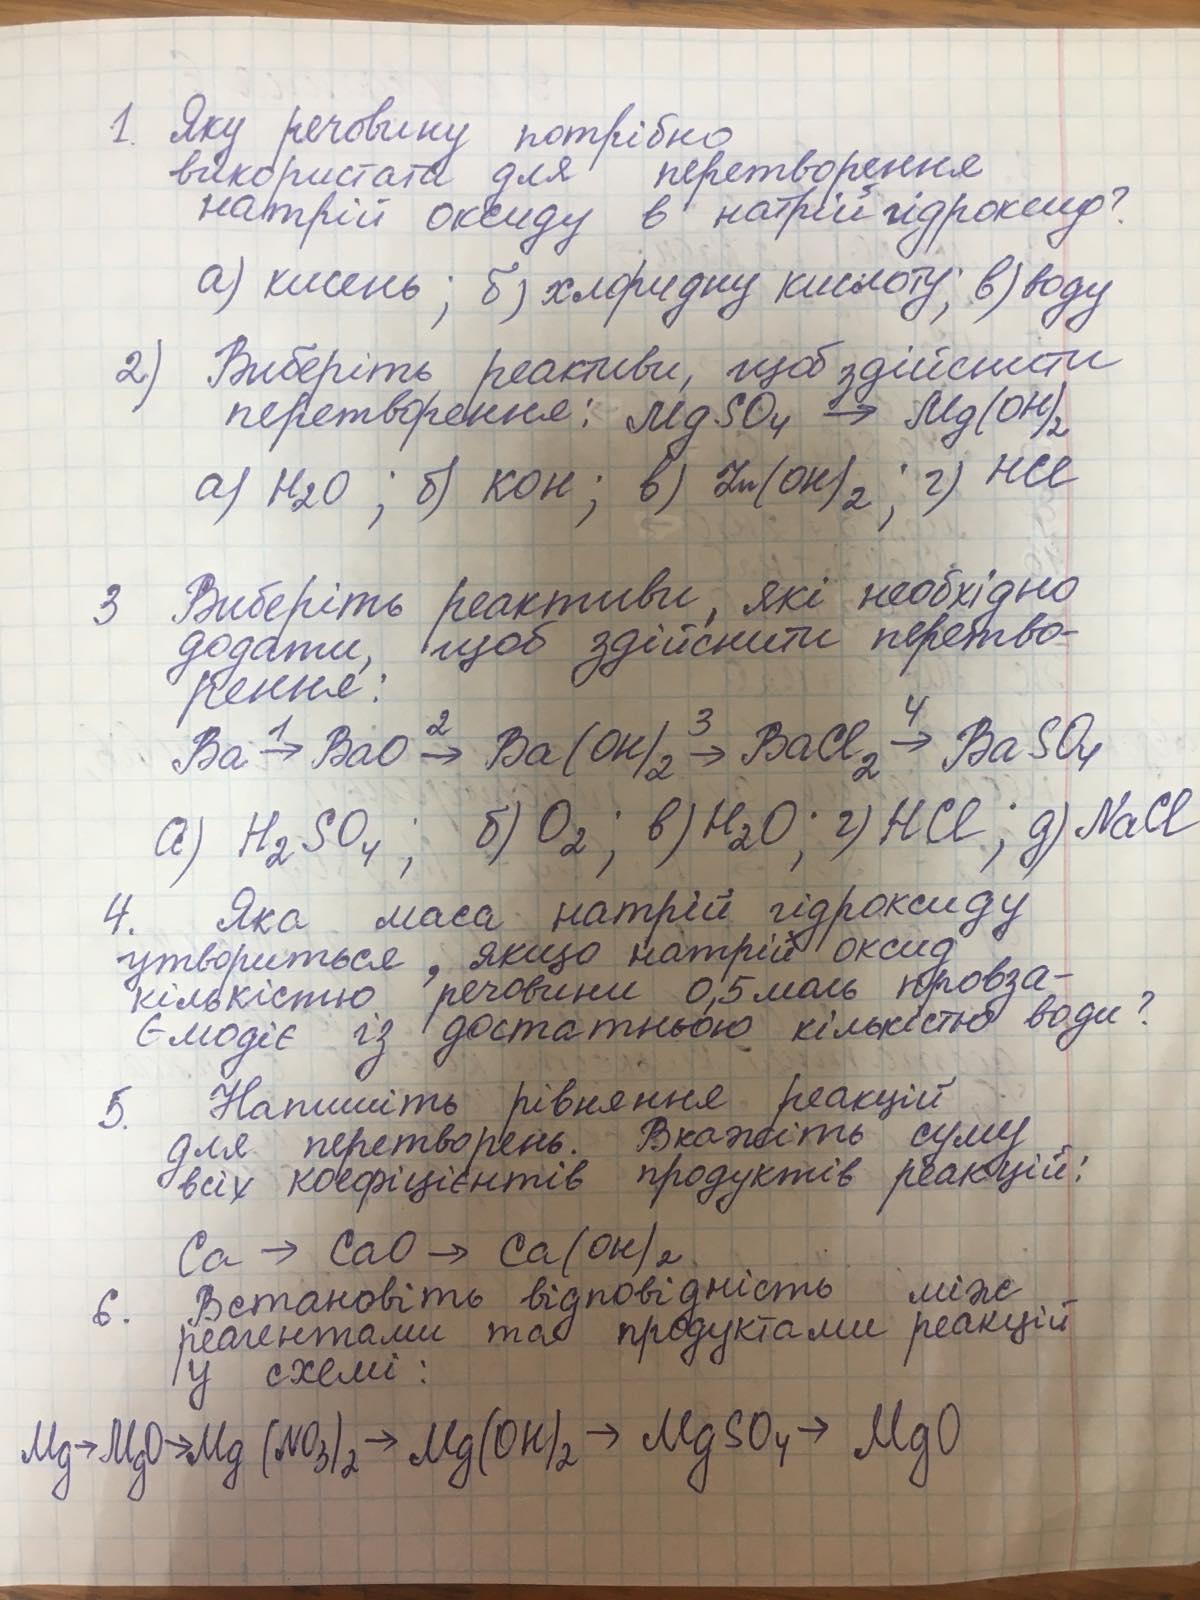 1. Яку речовину потрібно
використата для перетворення
натрій оксиду в натрій гідроксид?
а) кисень; б) хлоридну кислоту; в) воду
2) Виберіть реактиви, щоб здійснити
перетворення: MgSO4 → Mg(OH)2
а) H2O; б) KOH; в) Zn(OH)2; г) HCl
3 Виберіть реактиви, які необхідно
додати, щоб здійснити перетво-
рення:
Ba 1→ BaO 2→ Ba(OH)2 3→ BaCl2 4→ BaSO4
а) H2SO4; б) O2; в) H2O; г) HCl; д) NaCl
4. Яка маса натрій гідроксиду
утвориться, якщо натрій оксид
кількістю речовини 0,5 моль провза-
ємодіє із достатньою кількістю води?
5. Напишіть рівняння реакцій
для перетворень. Вкажіть суму
всіх коефіцієнтів продуктів реакцій:
Ca → CaO → Ca(OH)2
6. Встановіть відповідність між
реагентами та продуктами реакцій
у схемі:
Mg → MgO → Mg(NO3)2 → Mg(OH)2 → MgSO4 → MgO